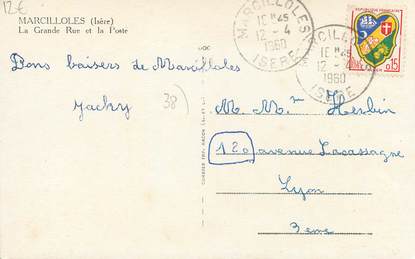 12€
MARCILLOLES (Isère)
La Grande Rue et la Poste
MARCILLOLES
1C H45
12 - 4
1960
ISERE
1C H45
12 - 4
1960
ISERE
REPUBLIQUE FRANÇAISE
0,15
Bons baisers de Marcilloles
Jacky
38
M. Mme Herbin
120 avenue Lacassagne
Lyon
3eme